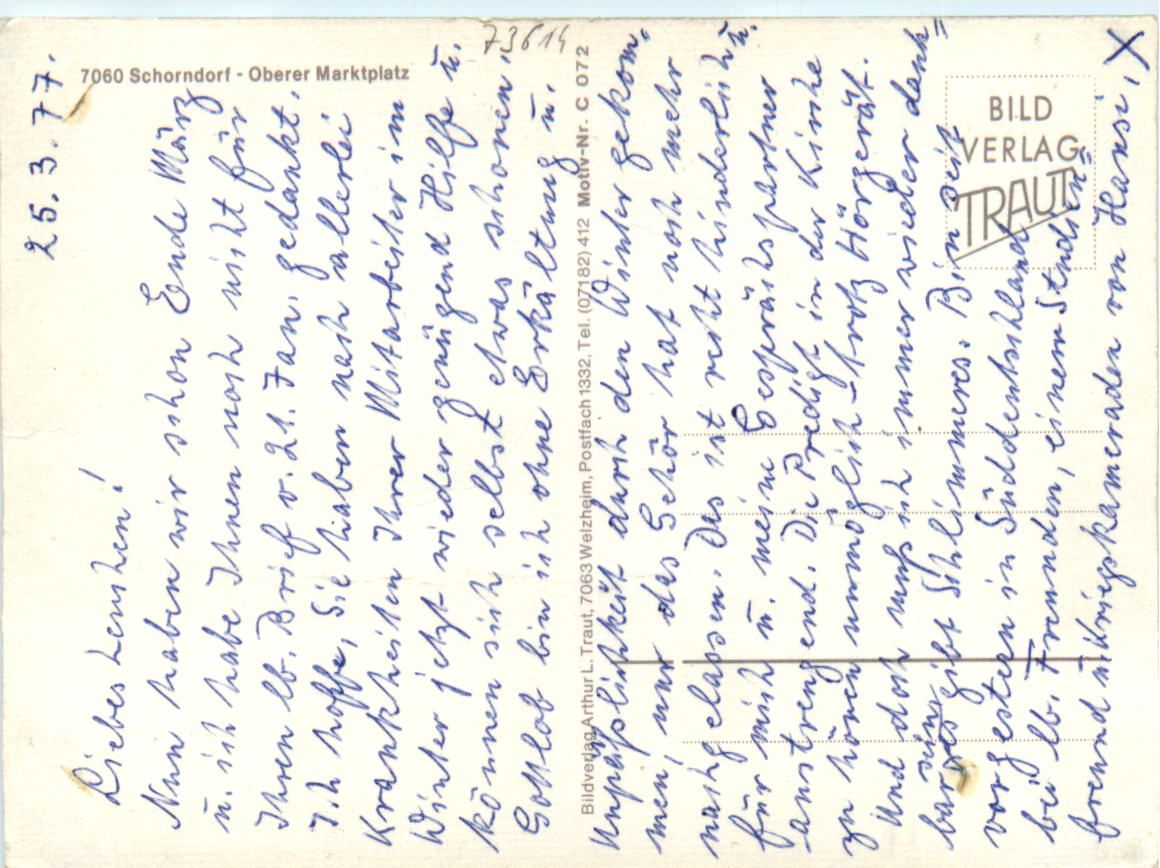 7060 Schorndorf - Oberer Marktplatz
73614
25.3.77.
Liebes Lenchen!
Nun haben wir schon Ende März
u. ich habe Ihnen noch nicht für
Ihren lb. Brief v. 21. Jan. gedankt.
Ich hoffe, Sie haben nach allerlei
Krankheiten Ihrer Mitarbeiter im
Winter jetzt wieder genügend Hilfe u.
können sich selbst etwas schonen.
Gottlob bin ich ohne Erkältung u.
Bildverlag Arthur L. Traut, 7063 Welzheim, Postfach 1332, Tel. (07182) 412 Motiv-Nr. C 072
Unpäßlichkeit durch den Winter gekom-
men, nur das Gehör hat noch mehr
nachgelassen. Das ist recht hinderlich u.
für mich u. meine Gesprächspartner
anstrengend. Die Predigt in der Kirche
zu hören unmöglich - trotz Hörgerät.
Und doch muß ich immer wieder dank-
bar sein, es gibt Schlimmeres. Bin seit
vorgestern in Süddeutschland
bei lb. Freunden, einem Studien-
freund u. Kriegskameraden von Hansi, X
BILD
VERLAG
TRAUT